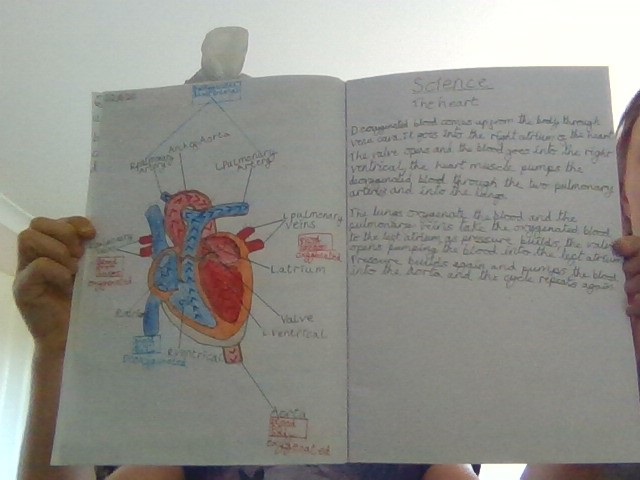 Arch of Aorta
R pulmonary
Artery
L Pulmonary
Artery
L pulmonary
veins
Blood
oxygenated
pulmonary
oxygenated
L atrium
Valve
L ventrical
R ventrical
Aorta
Blood
oxygenated
Science
The heart
Deoxygenated blood comes up from the body through
vena cava. It goes into the right atrium of the heart
The valve opens and the blood goes into the right
ventrical, the heart muscle pumps the
deoxygenated blood through the two pulmonary
arterys and into the lungs.
The lungs oxygenate the blood and the
pulmonary veins take the oxygenated blood
to the left atrium as pressure builds the valve
opens pumping the blood into the left atrium
Pressure builds again and pumps the blood
into the Aorta and the cycle repeats again.